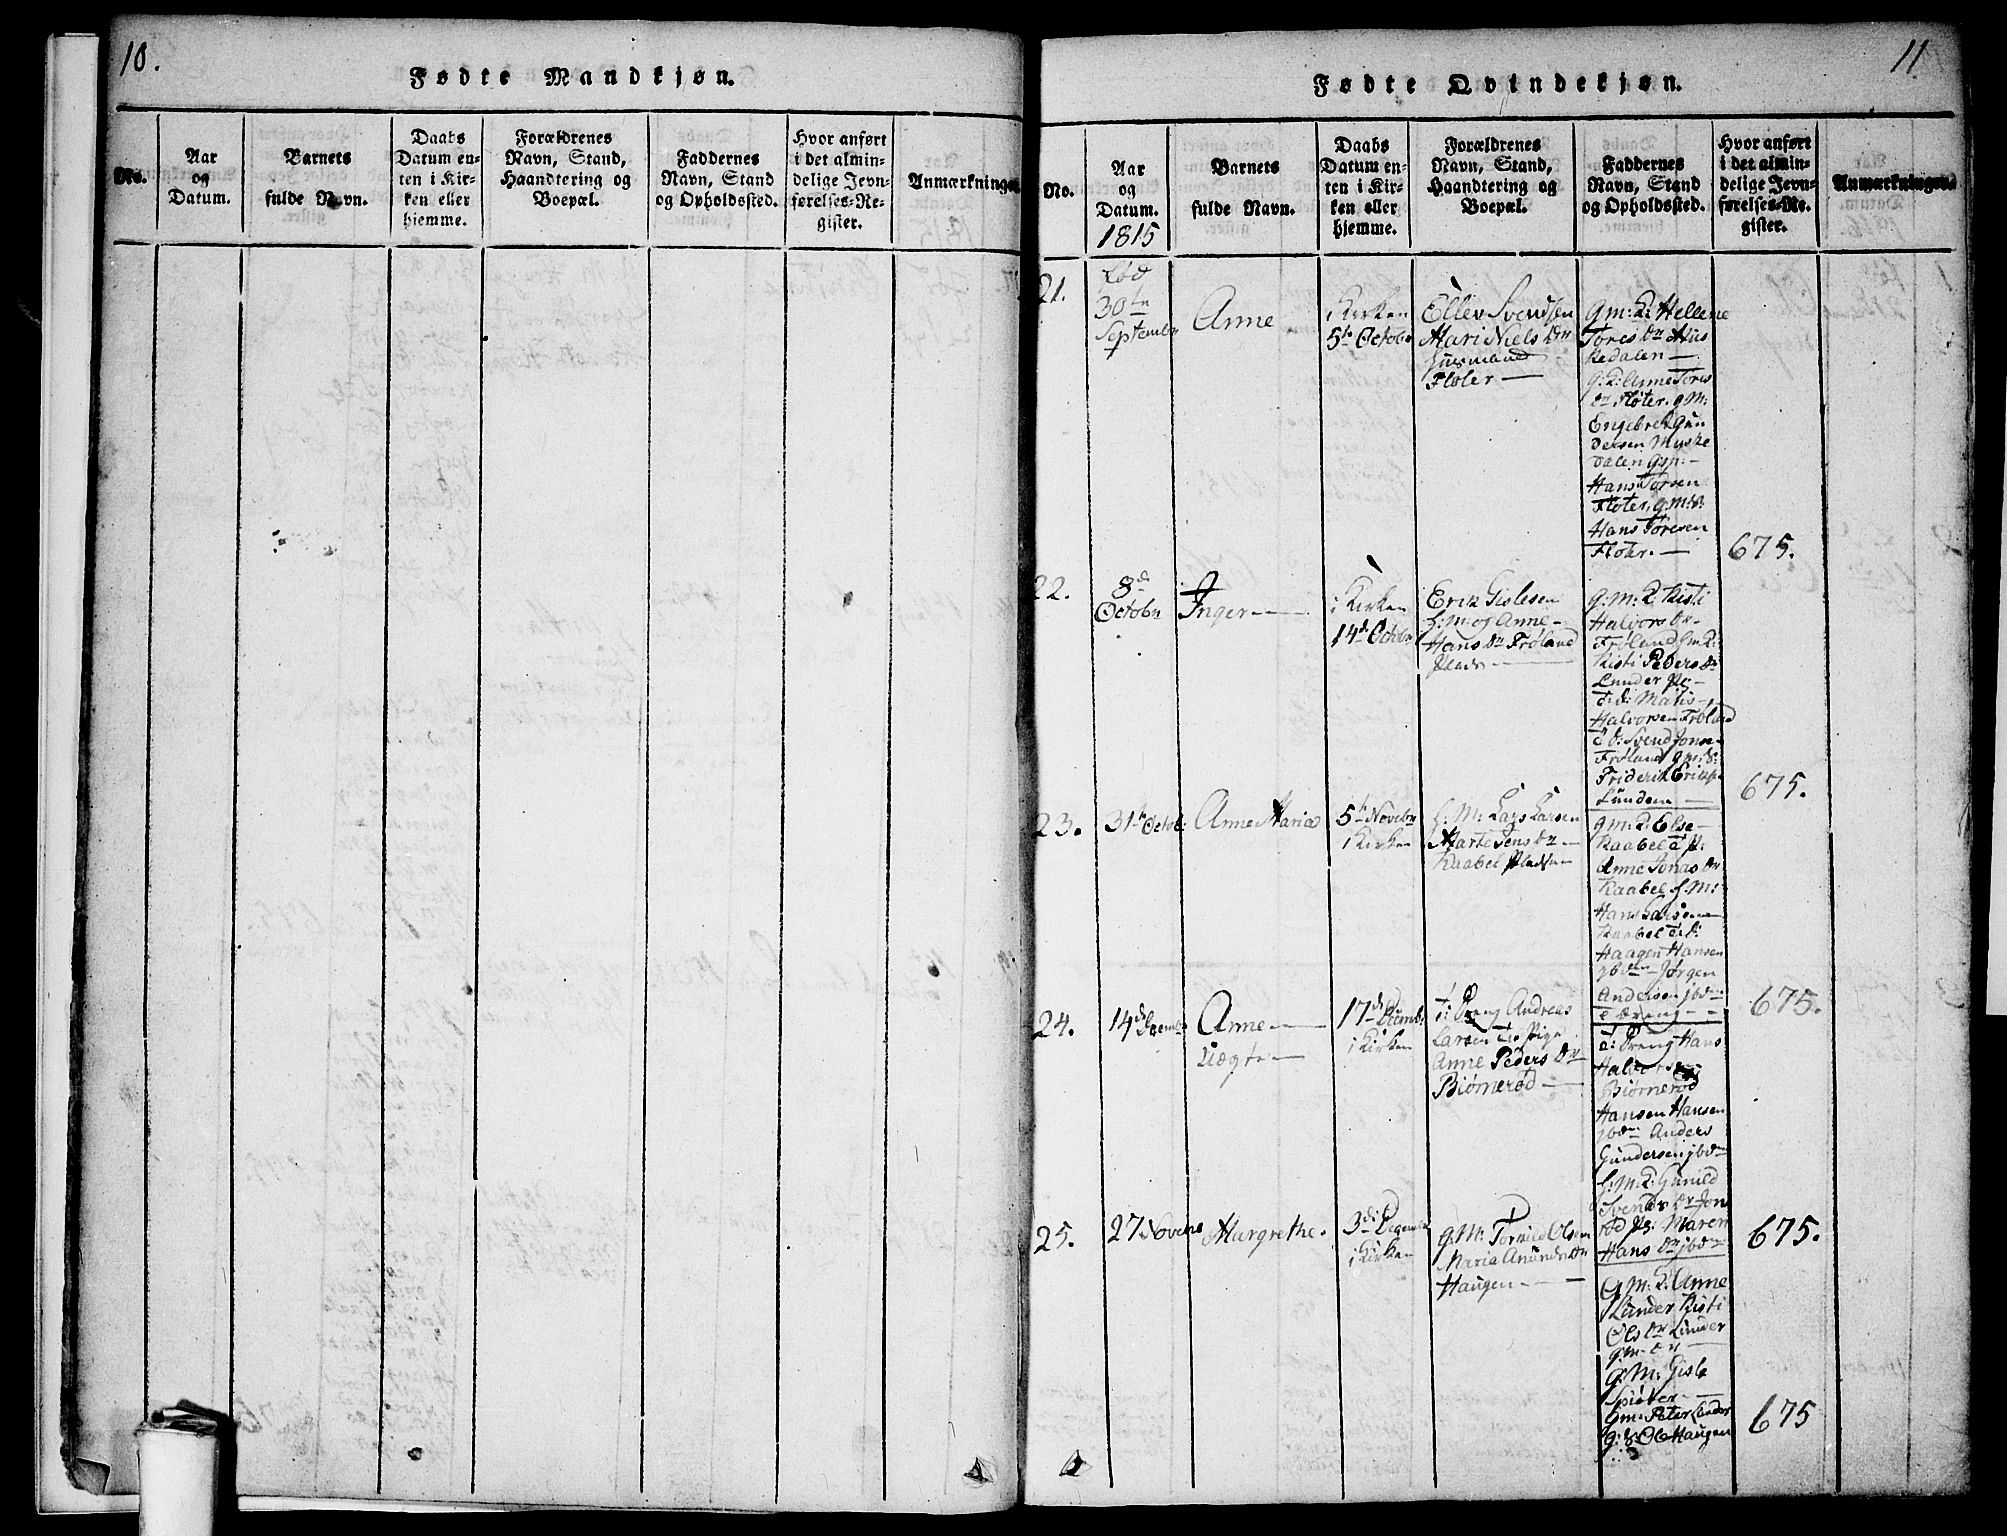 10.
Fødte Mandkjøn.
No.
Aar
og
Datum.
Barnets
fulde Navn.
Daabs
Datum en-
ten i Kir-
ken eller
hjemme.
Forældrenes
Navn, Stand,
Haandtering og
Boepæl.
Faddernes
Navn, Stand
og Opholdssted.
Hvor anført
i det almin-
delige Jevn-
førelses-Re-
gister.
Anmærkninger.
11.
Fødte Qvindekjøn.
No.
Aar
og
Datum.
1815
Barnets
fulde Navn.
Daabs
Datum en-
ten i Kir-
ken eller
hjemme.
Forældrenes
Navn, Stand,
Haandtering og
Boepæl.
Faddernes
Navn, Stand
og Opholdssted.
Hvor anført
i det almin-
delige Jevn-
førelses-Re-
gister.
Anmærkninger.
21.
fød
30te
September
Anne
i Kirken
5te Octobr
Ellev Svendsen
Mari Niels Dr
Huusmand
Fløter
g: m: K: Hellene
Tores Dr Mus
kedalen
g: K: Anne Tores
Dr Fløter. g. M:
Engebret Gun
dersen Muske
dalen
Hans Torsen
Fløter. g. m:
Hans Toresen
Fløter.
675.
22.
8d
Octobr
Inger
i Kirken
14d Octobr
Erik Gislesen
H: M: og Anne
Hans Dr Frøland
Plads
g: M: K: Kisti
Halvors Dr
Frøland Gm: K:
Kisti Peders Dr
Lunder
Matis
Halvorsen Frøland
Svend Jonse
Frøland g: m:
Friderik Erikse
Lunden
675.
23.
31te Octob:
Anne Maria
5te Novebr
i Kirken
H: M: Lars Larsen
Marte Jens Dr
Kaabel Pladsen
g: M: K: Else
Kaabel
Anne Jonas Dr
Kaabel H: M:
Hans Larsen
Kaabel
Haagen Hansen
Jørgen
Andersen
675.
24.
14d Decembr
Anne
Uægte
17d Decemb:
i Kirken
T: Dreng Andreas
Larsen Pige
Anne Peders Dr
Biørnerød
T: Dreng Hans
Halvorsen
Biørnerød
Hansen Hansen
Anders
Gundersen
H: M: K: Gunild
Svends Dr Jon
rød Pg: Maren
Hans Dr
675.
25.
27 Novebr
Margrethe.
3d: Decembr
i Kirken
g: M: Tormud Olsen
Maria Anunds Dr
Haugen
G: M: K: Anne
Lunder Kisti
Ols Dr Lunder
g: M: Gisle
Spiøver
Gm: Peter Lunder
g: S: Ole Haugen
675